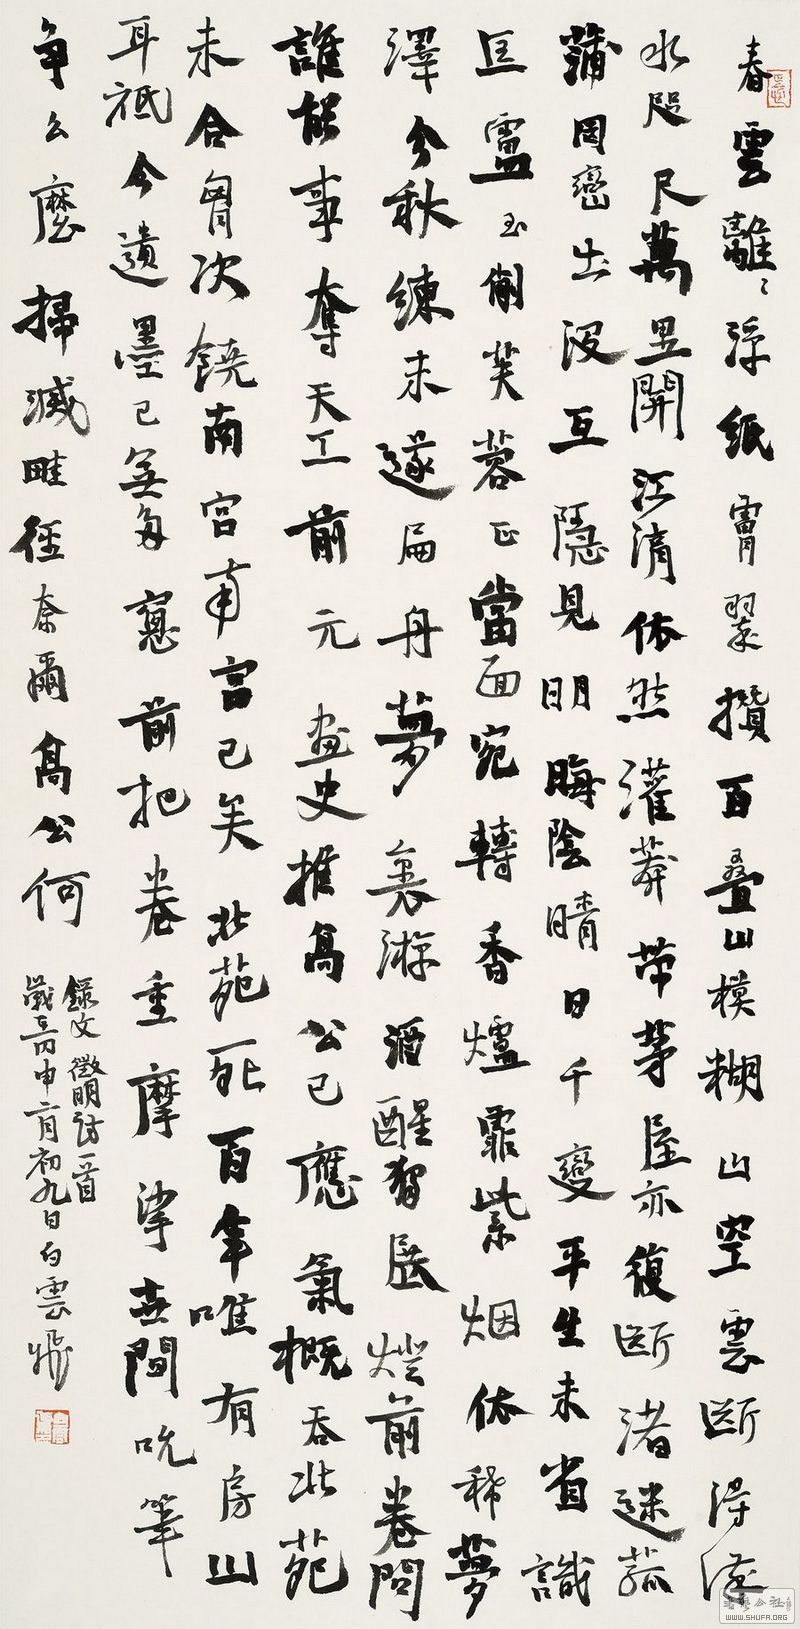 春雲離離浮紙膚翠攢百疊山模糊山空雲斷得流
水咫尺萬里開江湖依然灌莽帶茅屋亦復斷渚迷菰
蒲岡巒出沒互隱見明晦陰晴日千變平生未省識
匡廬玉削芙蓉正當面宛轉香爐霏紫烟依稀夢
澤分秋練未遂扁舟夢裏游酒醒獨展燈前卷問
誰能事奪天工前元畫史推高公已應氣概吞北苑
未合胷次饒南宮南宮已矣北苑死百年唯有房山
耳祇今遺墨已無多窓前把卷重摩挲世間吮筆
爭么麼掃滅畦徑奈爾高公何
錄文徵明詩一首
歲壬丙申六月初九日白雲飛
WWW.SHUFA.ORG